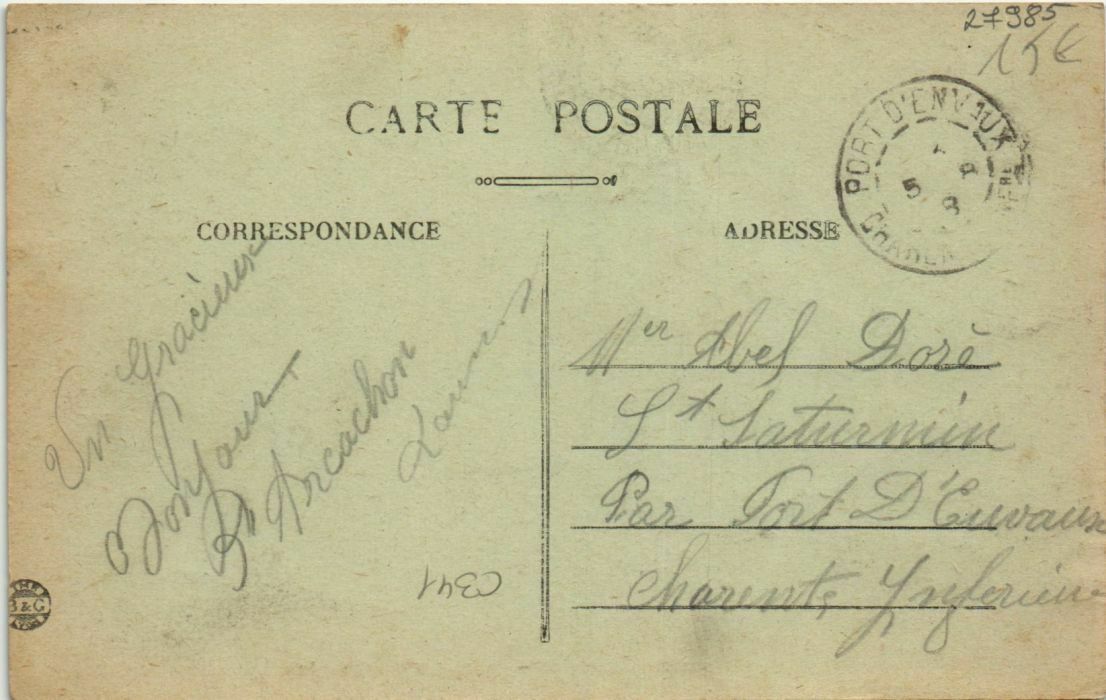 27985
15€
CARTE POSTALE
PORT D'ENVAUX
5 8
CORRESPONDANCE
ADRESSE
Un Gracieux
Bonjour
Arcachon
Mer Abel Doré
St Saturnin
Par Port D'Envaux
Charente Inferieure
C341
B & G